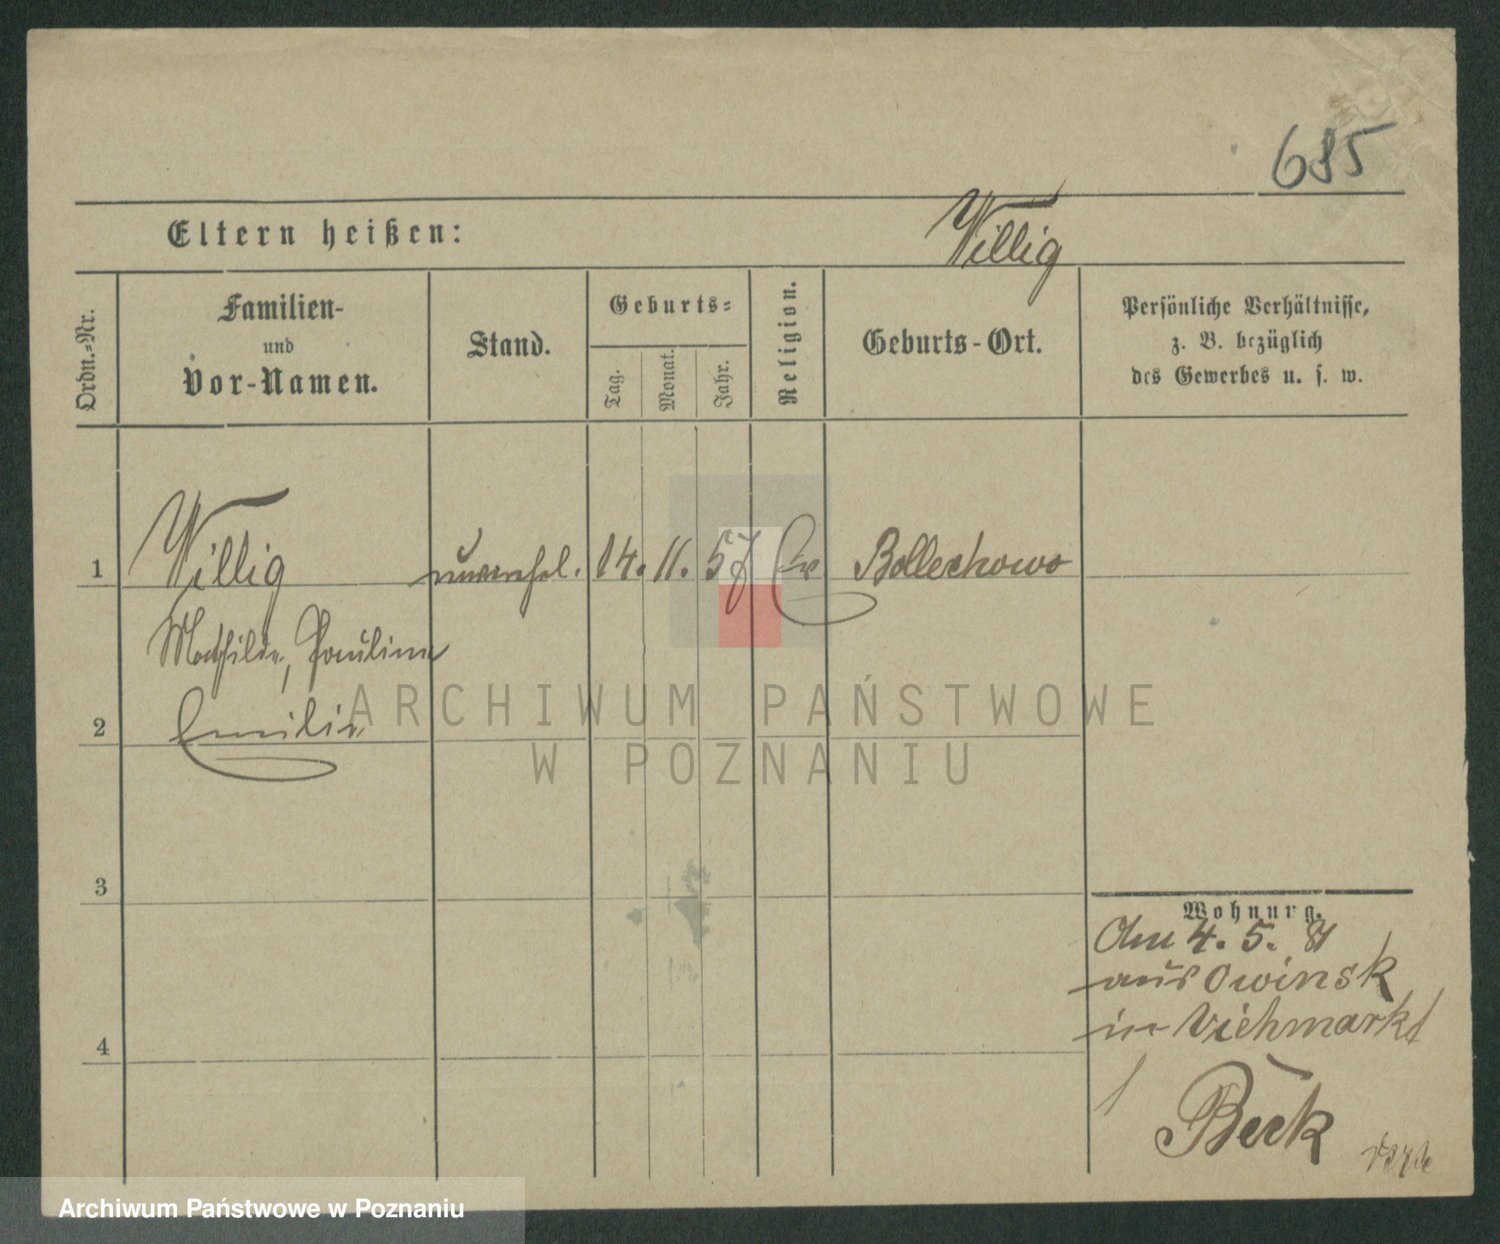 685
Eltern heißen:
Willig
Ordn.-Nr.
Familien-
und
Vor-Namen.
Stand.
Geburts-
Tag.
Monat.
Jahr.
Religion.
Geburts-Ort.
Persönliche Verhältnisse,
z. B. bezüglich
des Gewerbes u. s. w.
1
Willig
unverehel. 14. 11. 57 Ev Bollechowo
Mathilde, Pauline
2
Emilie
ARCHIWUM PAŃSTWOWE
W POZNANIU
3
Wohnung.
Am 4. 5. 81
aus Owinsk
in Viehmarkt
4
Beek
Archiwum Państwowe w Poznaniu